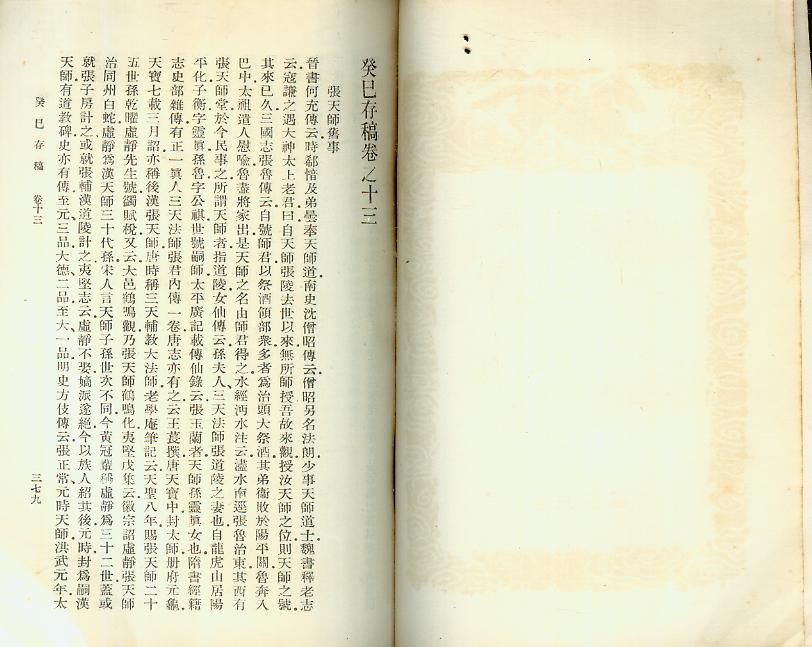 癸巳存稿卷之十三
張天師舊事
晉書何充傳云時郗愔及弟曇奉天師道南史沈僧昭傳云僧昭另名法朗少事天師道士魏書釋老志
云寇謙之遇大神太上老君曰自天師張陵去世以來無所師授吾故來觀授汝天師之位則天師之號
其來已久三國志張魯傳云自號師君以祭酒領部衆多者爲治頭大祭酒其弟衞敗於陽平關魯奔入
巴中太祖遣人慰喩魯盡將家出是天師之名由師君得之水經沔水注云濜水南逕張魯治東其西有
張天師堂於今民事之所謂天師者指道陵女仙傳云孫夫人三天法師張道陵之妻也自龍虎山居陽
平化子衡字靈眞孫魯字公祺世號嗣師太平廣記載傳仙錄云張玉蘭者天師孫靈眞女也隋書經籍
志史部雜傳有正一眞人三天法師張君內傳一卷唐志亦有之云王萇撰唐天寶中封太師册府元龜
天寶七載三月詔亦稱後漢張天師唐時稱三天輔教大法師老學庵筆記云天聖八年賜張天師二十
五世孫乾曜虛靜先生號蠲賦稅又云大邑鶴鳴觀乃張天師鶴鳴化夷堅戊集云徽宗詔虛靜張天師
治同州白蛇虛靜爲漢天師三十代孫宋人言天師子孫世次不同今黃冠輩稱虛靜爲三十二世蓋或
就張子房計之或就張輔漢道陵計之夷堅志云虛靜不娶嫡派遂絕今以族人紹其後元時封爲嗣漢
天師有道教碑史亦有傳至元三品大德二品至大一品明史方伎傳云張正常元時天師洪武元年太
癸巳存稿　卷十三
三七九